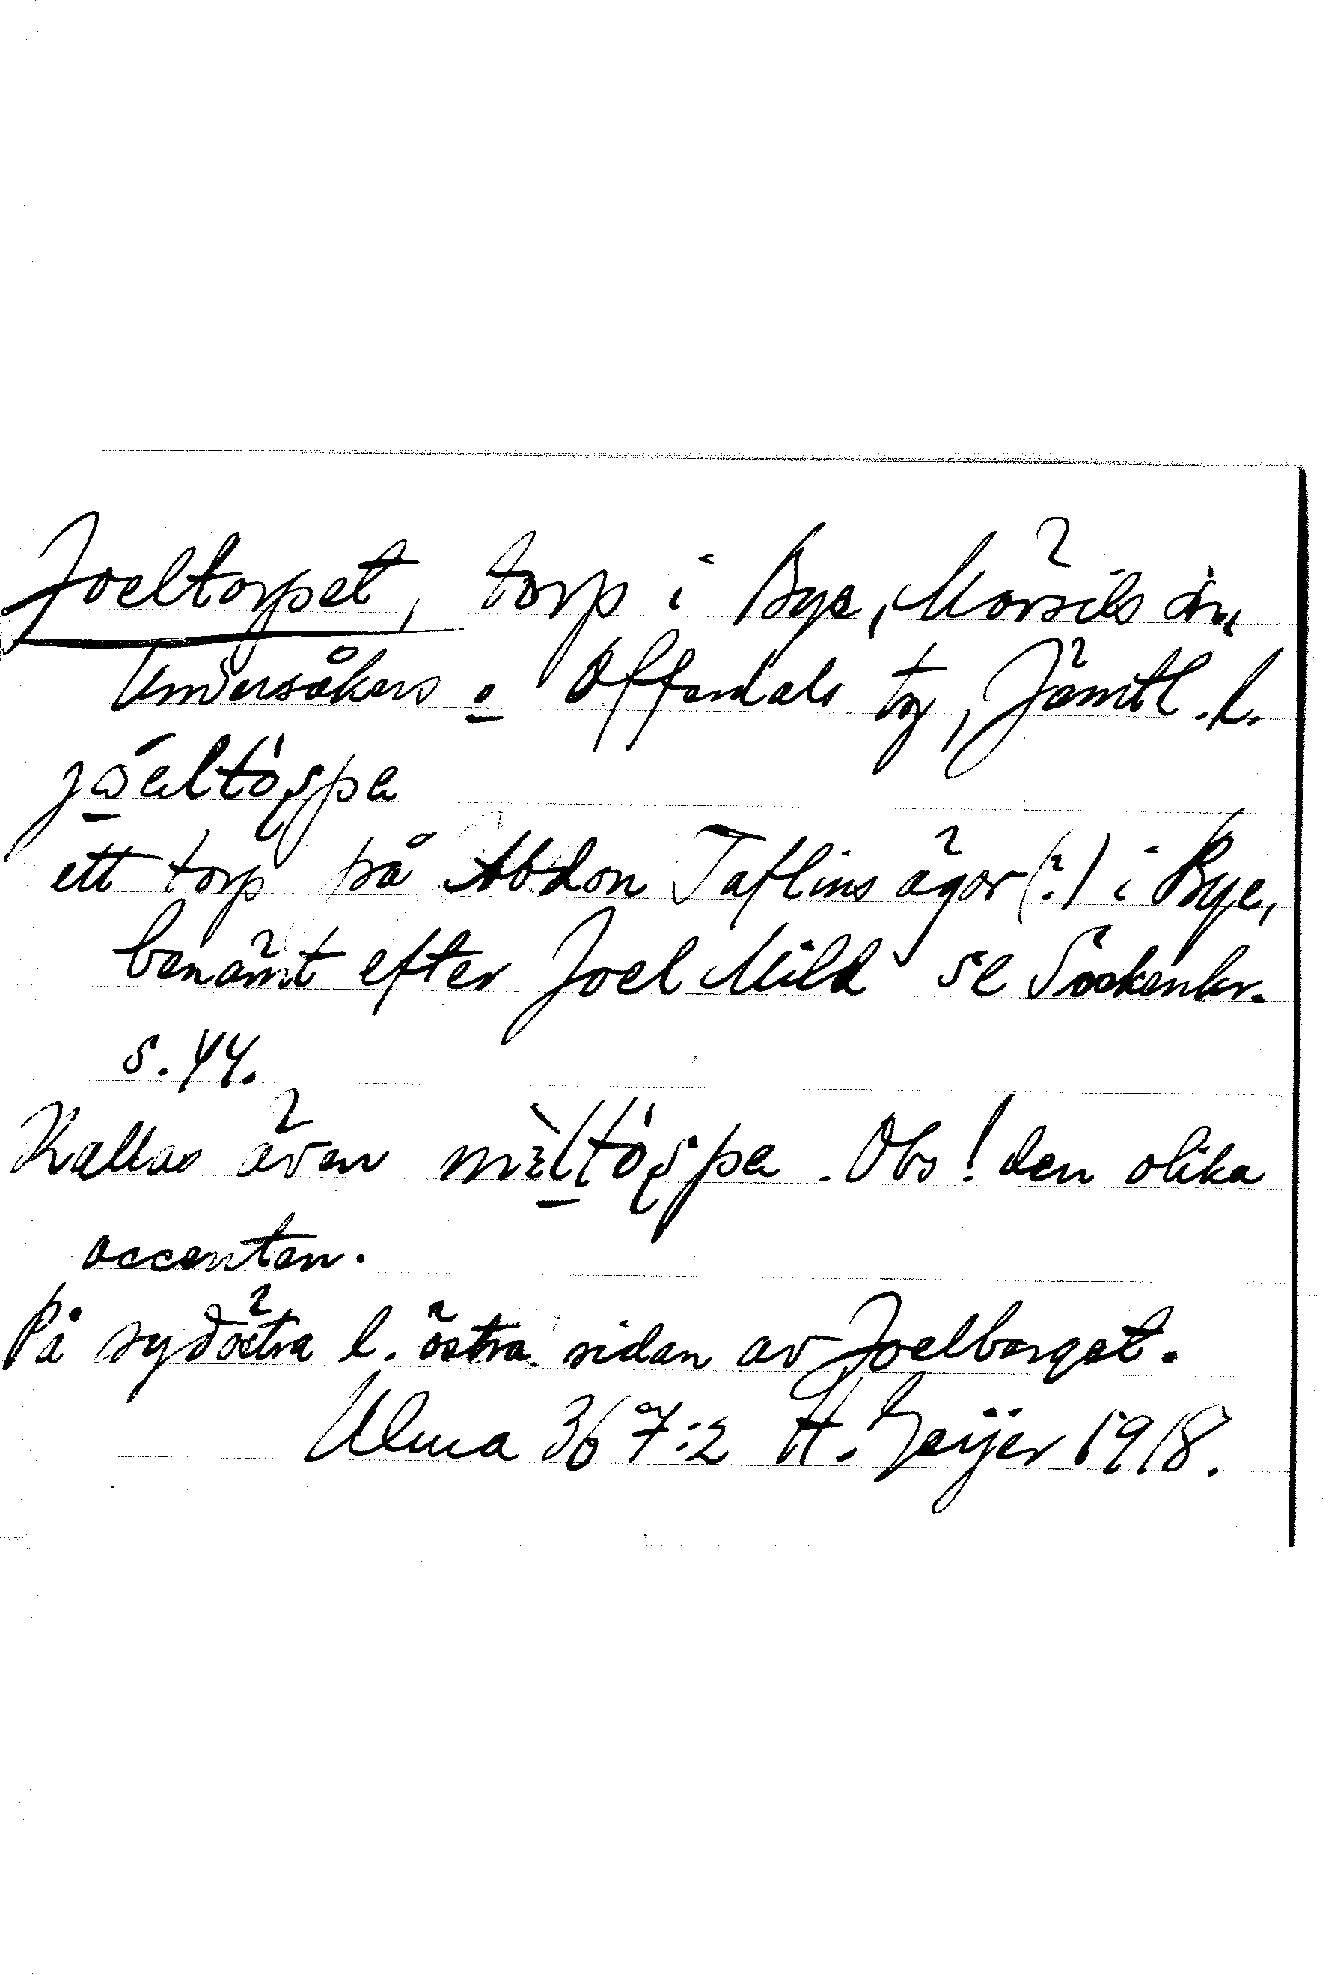 Joeltorpet, torp i Bye, Mörsils sn,
Undersåkers o Offerdals tg, Jämtl. l.
ett torp på Abdon Taflins ägor (?) i Bye,
benämt efter Joel Mild se Sockenbr.
s. 44.
Kallas även . Obs! den olika
accenten.
På sydöstra l. östra sidan av Joelberget.
Ulma 367:2 H. Geijer 1918.